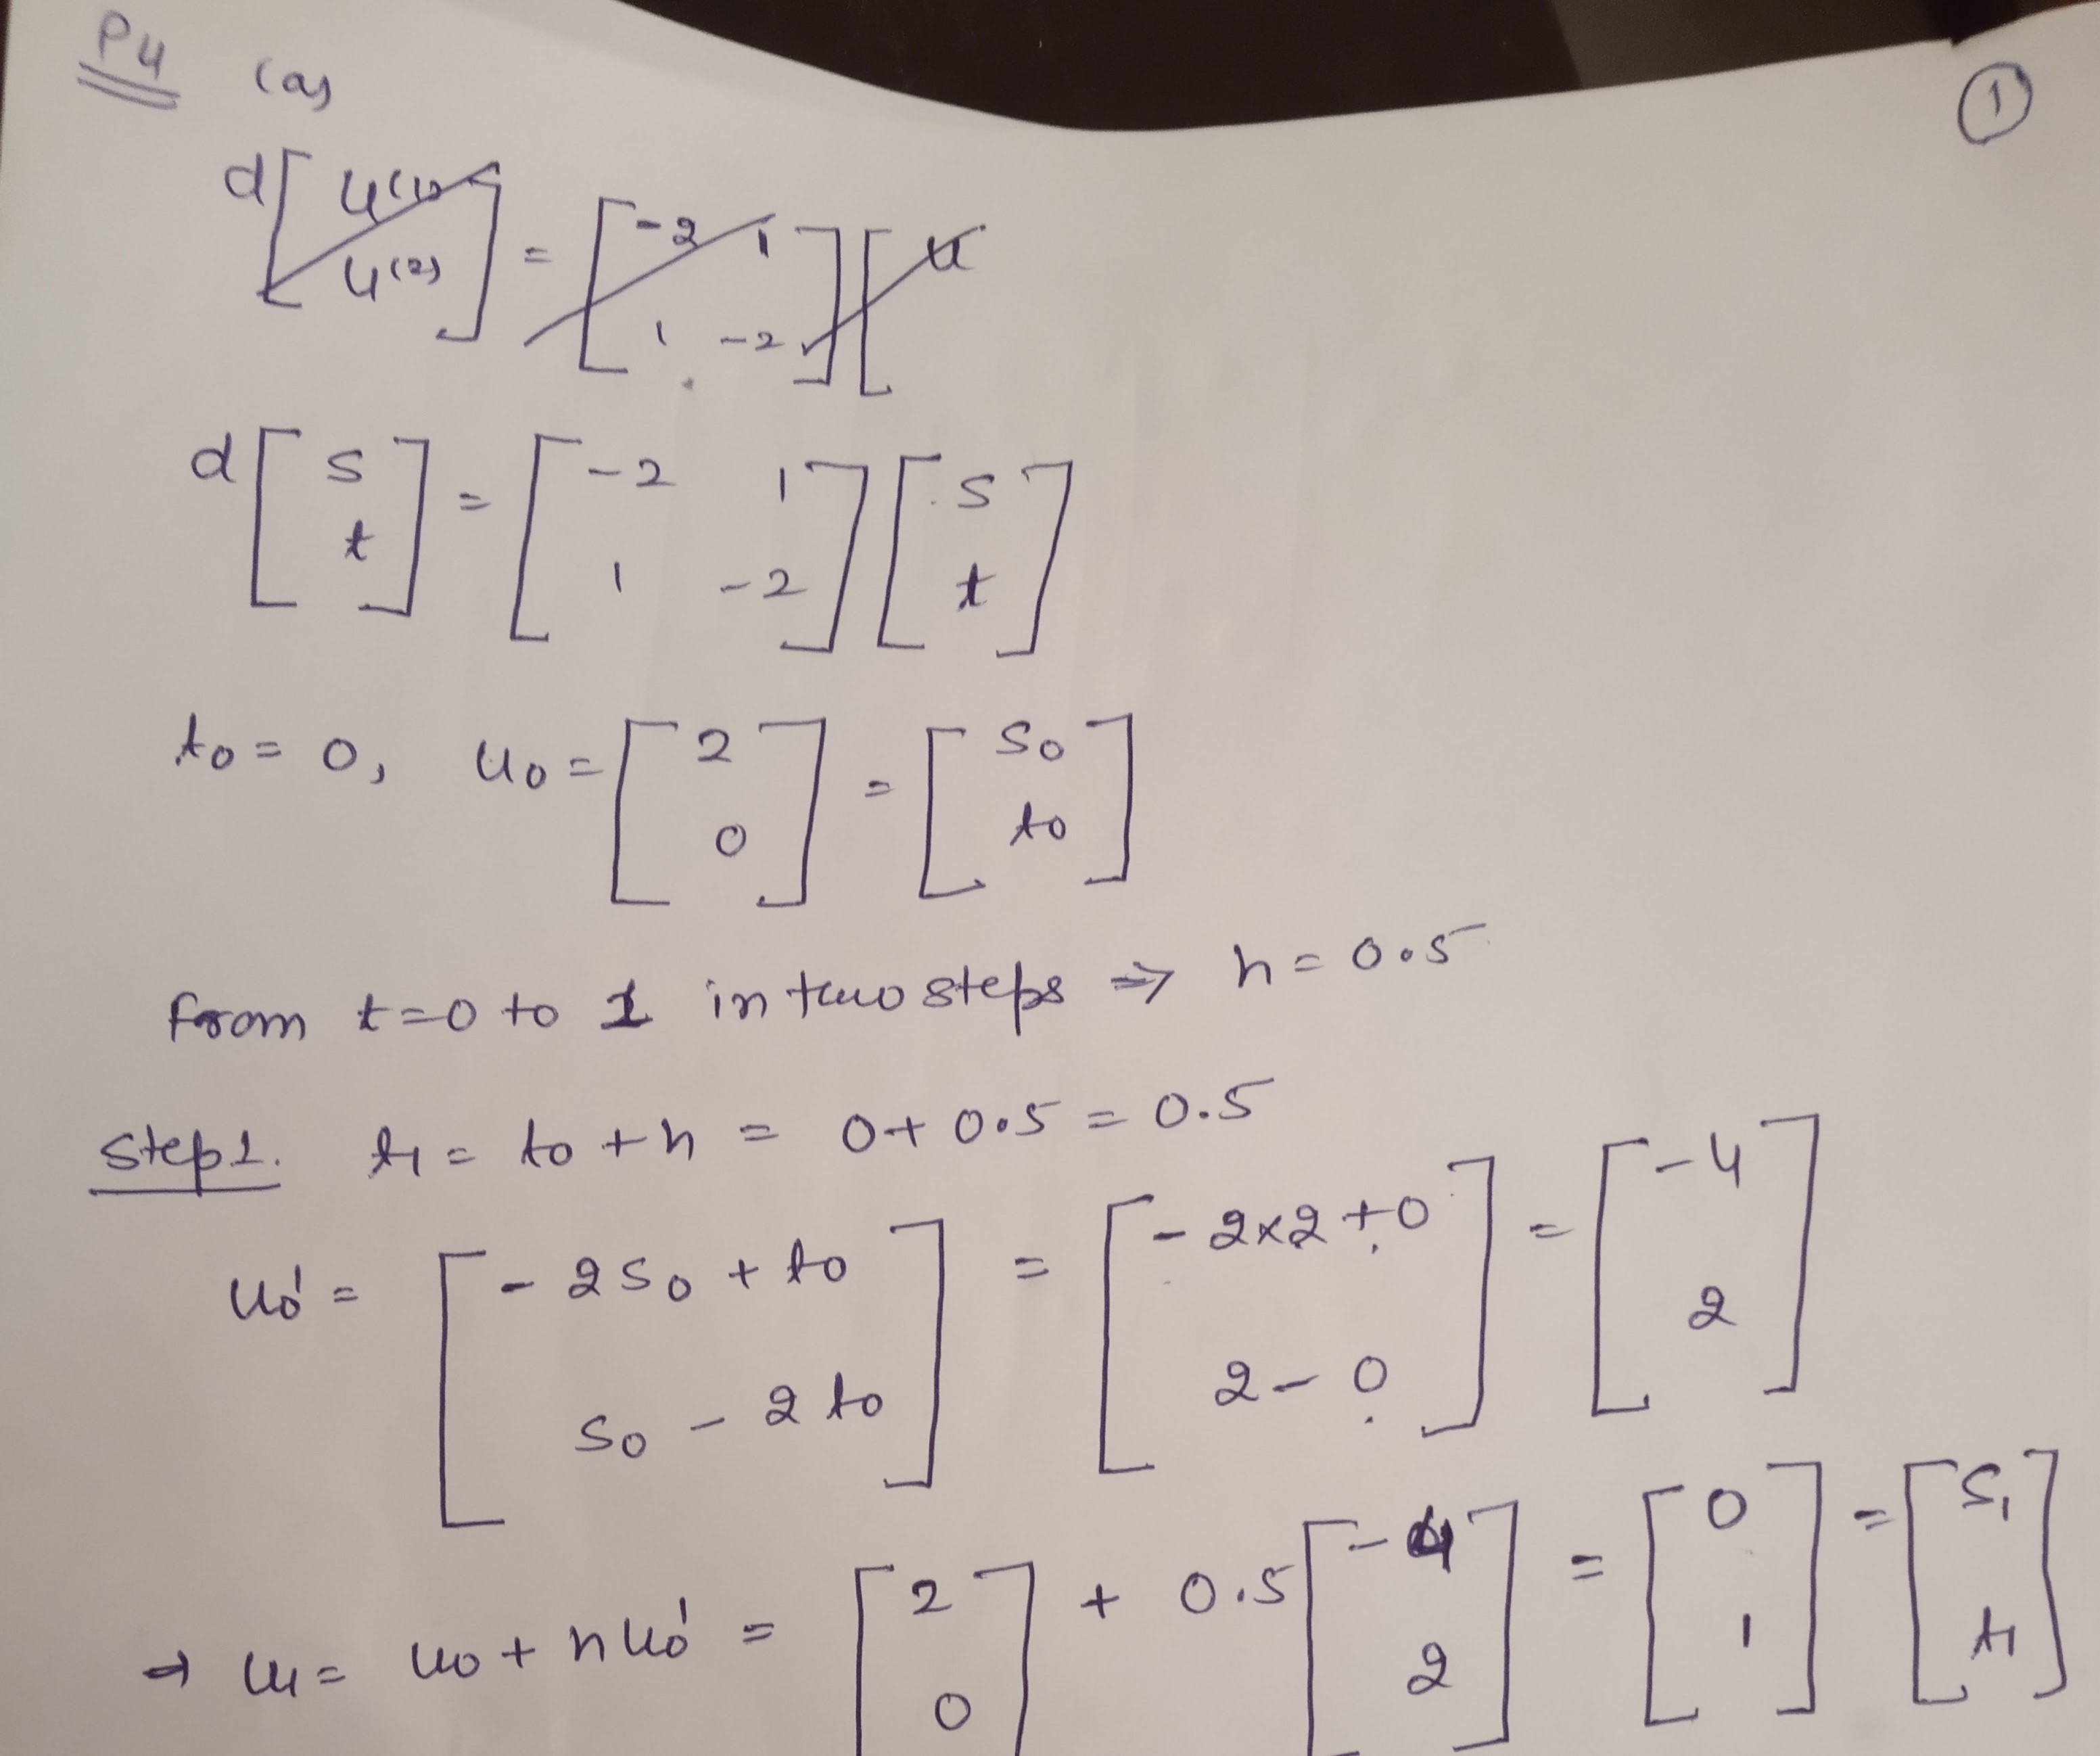 P4 (a) 1
d [ u(1) ; u(2) ] = [ -2 1 ; 1 -2 ] [ u
d [ s ; t ] = [ -2 1 ; 1 -2 ] [ s ; t ]
t0 = 0, u0 = [ 2 ; 0 ] = [ s0 ; t0 ]
From t=0 to 1 in two steps ⇒ h = 0.5
Step 1. t1 = t0 + h = 0 + 0.5 = 0.5
u0' = [ -2s0 + t0 ; s0 - 2t0 ] = [ -2×2+0 ; 2-0 ] = [ -4 ; 2 ]
⇒ u1 = u0 + hu0' = [ 2 ; 0 ] + 0.5 [ -4 ; 2 ] = [ 0 ; 1 ] = [ s1 ; t1 ]